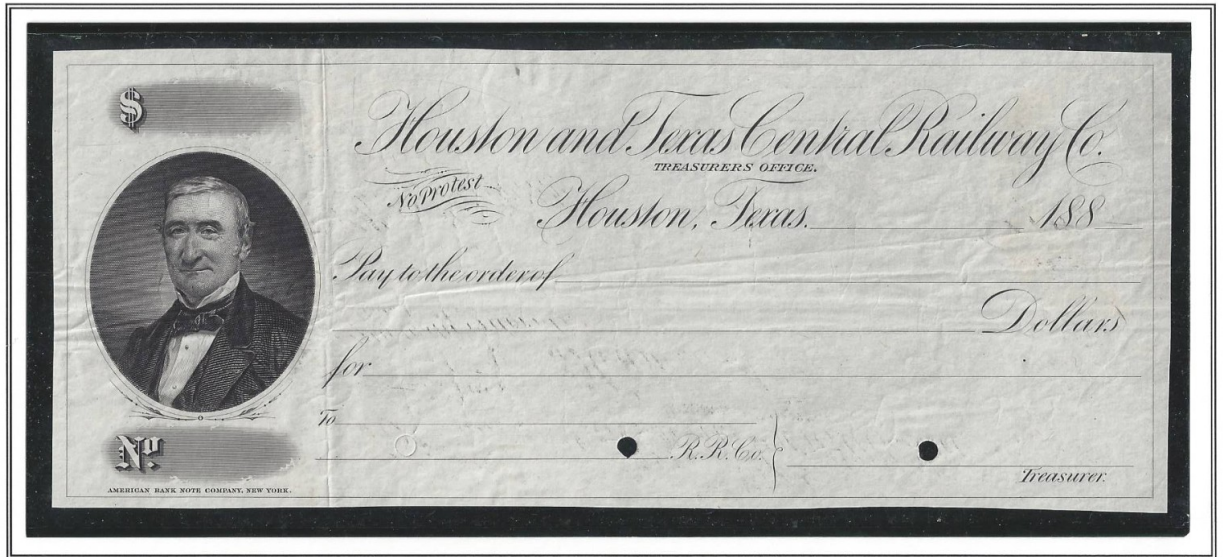 $
Houston and Texas Central Railway Co.
TREASURERS OFFICE.
No Protest
Houston, Texas. 188
Pay to the order of
Dollars
for
To
R.R.Co.
Treasurer.
No
AMERICAN BANK NOTE COMPANY, NEW YORK.